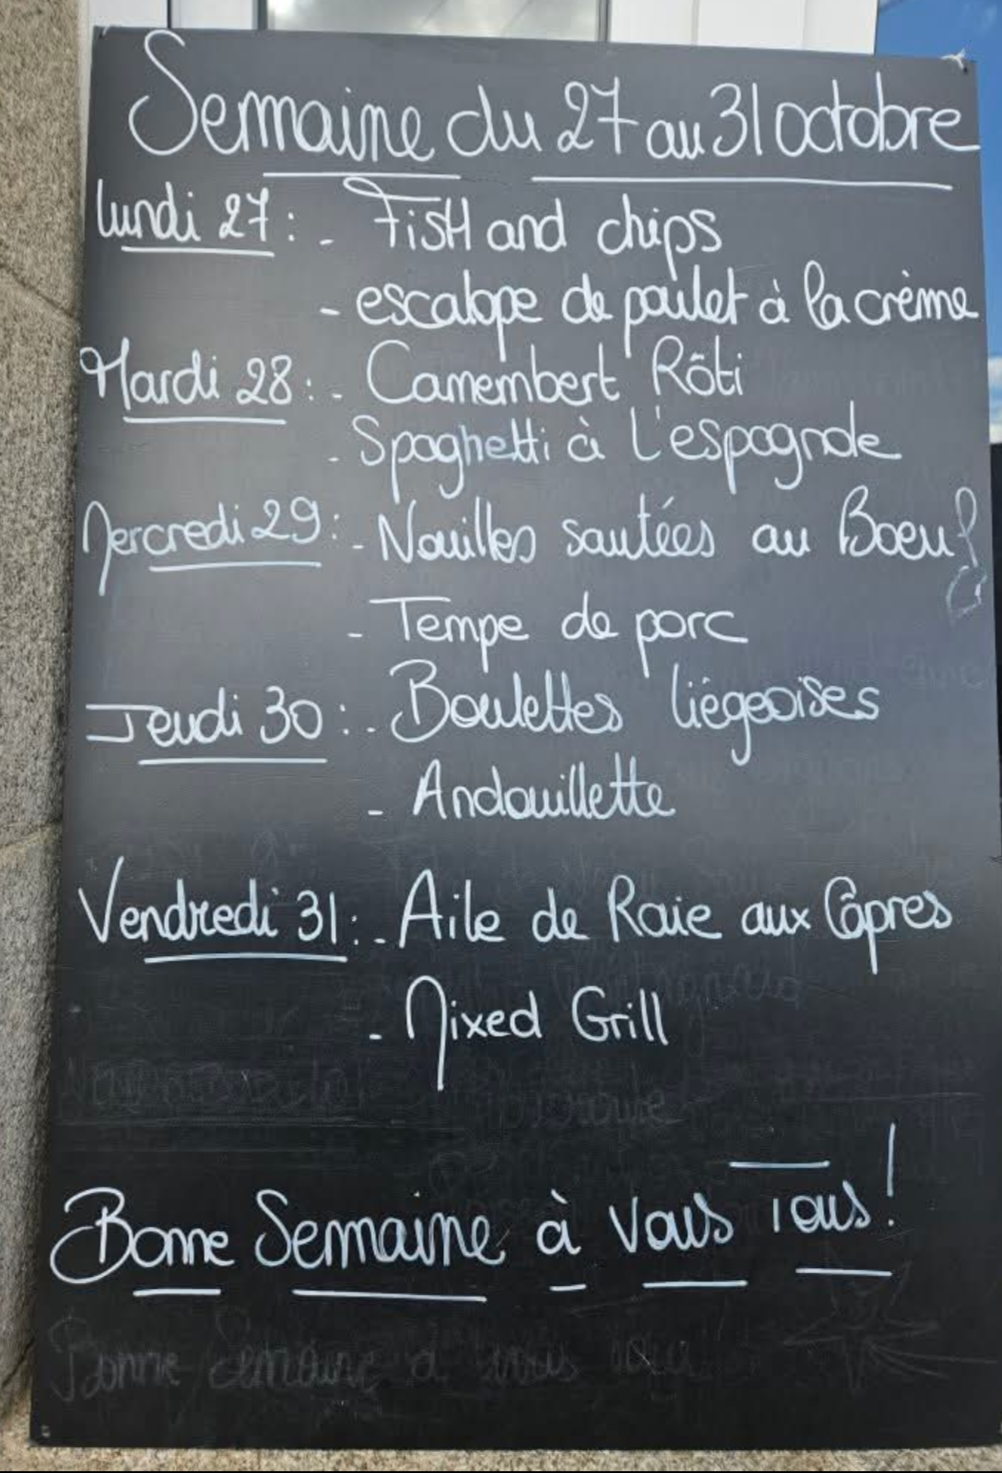 Semaine du 27 au 31 octobre
lundi 27 : - Fish and chips
- escalope de poulet à la crème
Mardi 28 : - Camembert Rôti
- Spaghetti à l'espagnole
Mercredi 29 : - Nouilles sautées au Boeuf
- Tempe de porc
Jeudi 30 : - Boulettes liégeoises
- Andouillette
Vendredi 31 : - Aile de Raie aux Câpres
- Mixed Grill
Bonne Semaine à vous Tous !